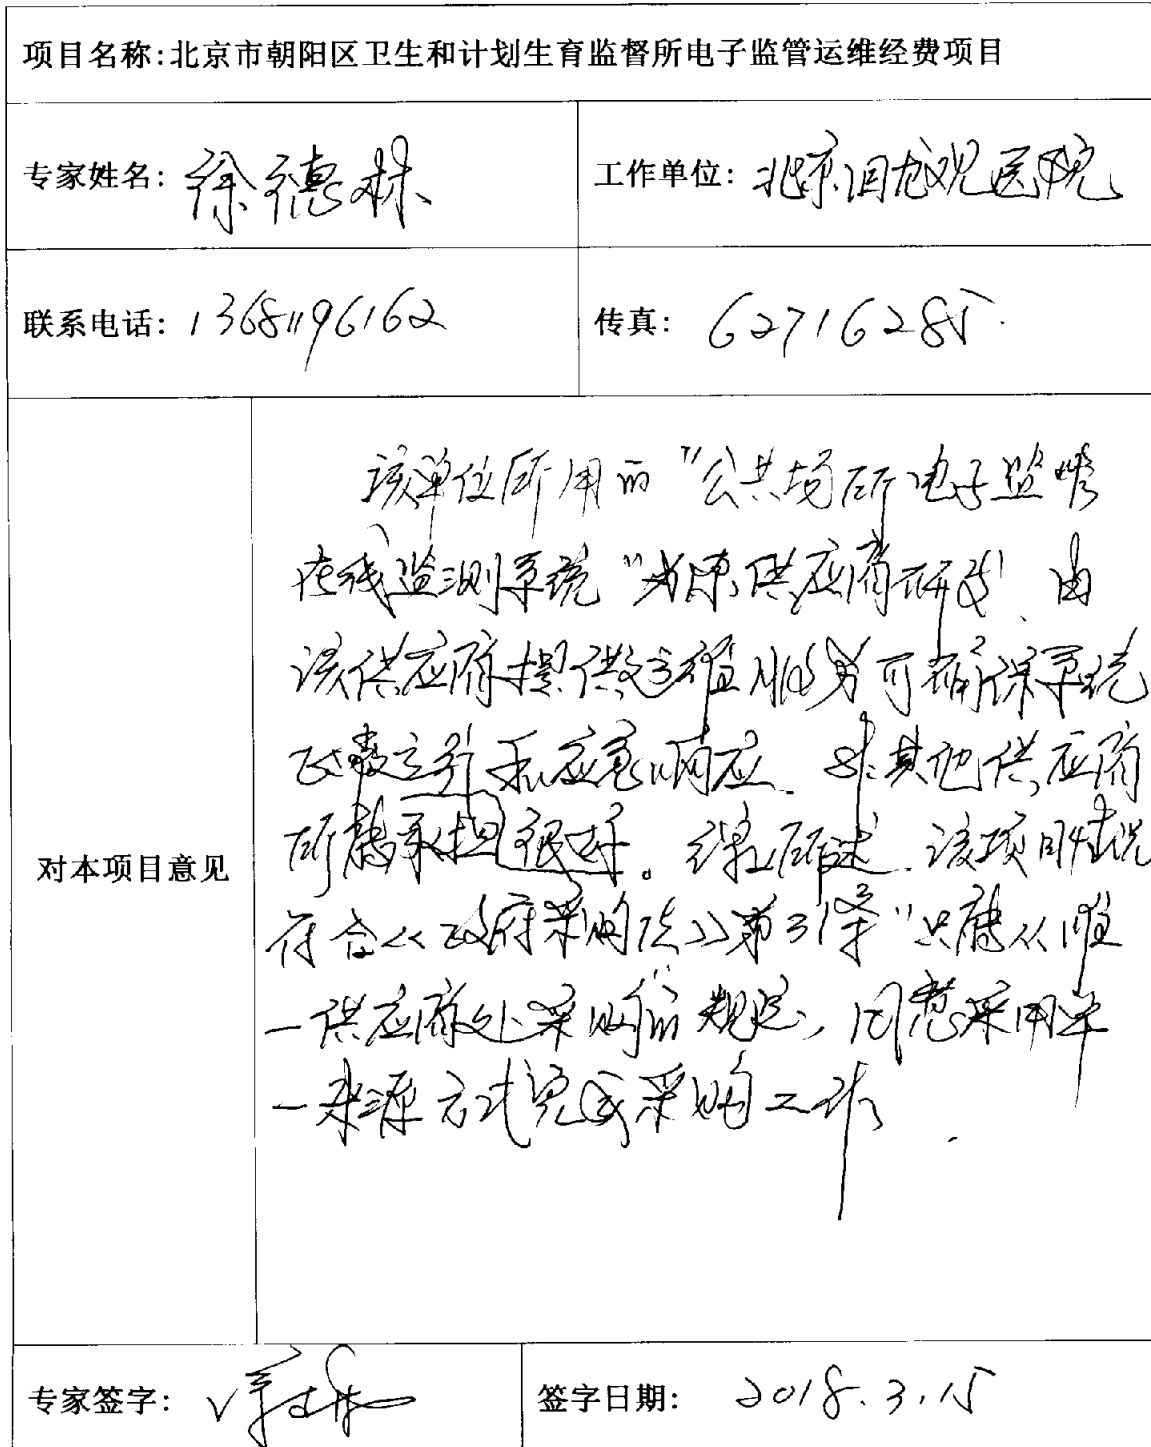 项目名称:北京市朝阳区卫生和计划生育监督所电子监管运维经费项目
专家姓名: 徐德林
工作单位: 北京回龙观医院
联系电话: 13681196162
传真: 62716285.
对本项目意见
该单位所用的"公共场所电子监督
在线监测系统"为原供应商研发,由
该供应商提供运维服务可确保系统
正常运行和应急响应.其他供应商
所承担很难。综上所述,该项目情况
符合《政府采购法》第31条"只能从唯
一供应商处采购"的规定,同意采用单
一来源方式完成采购工作.
专家签字:
签字日期: 2018.3.15